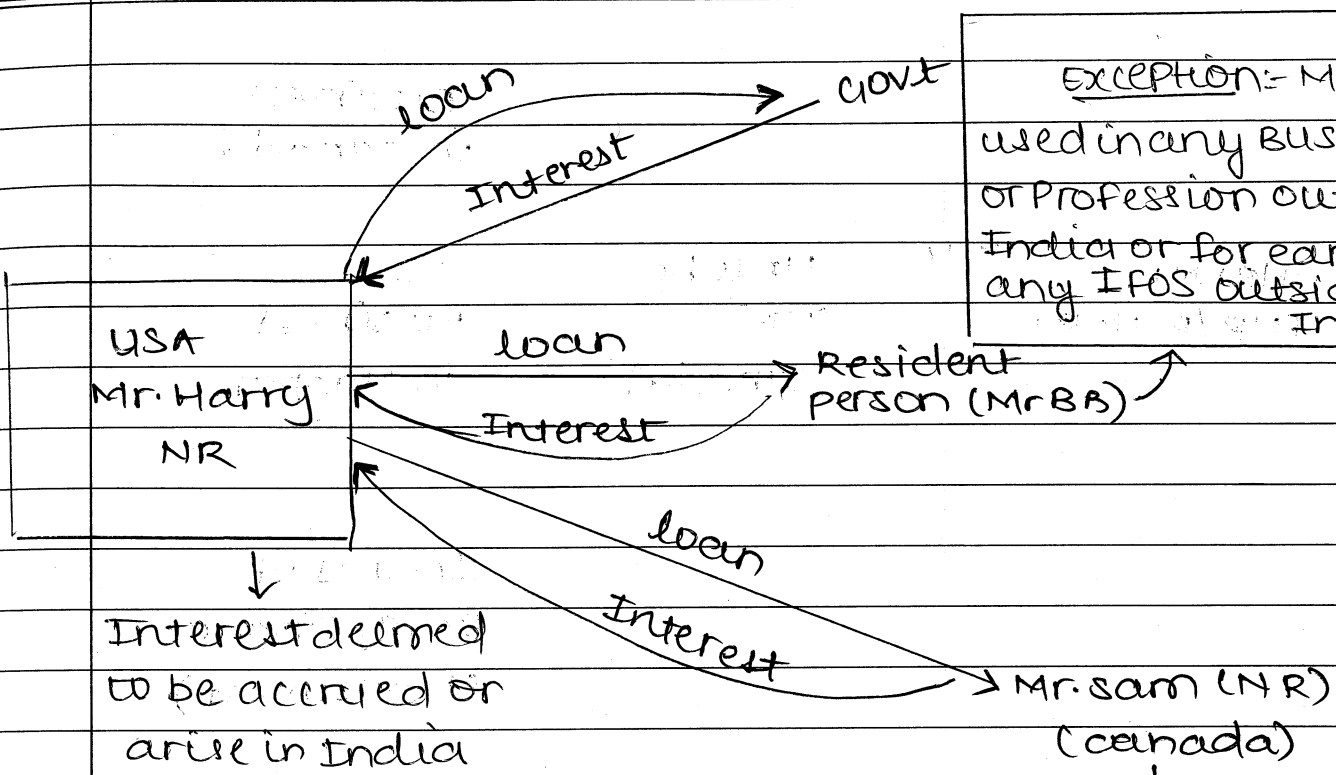 loan
Govt
Interest
Exception:- M
used in any BUS
or Profession ou
India or for ear
any IFOS outsid
In
USA
Mr. Harry
NR
loan
Resident
person (Mr BB)
Interest
loan
Interest
Mr. Sam (NR)
(canada)
Interest deemed
to be accrued or
arise in India